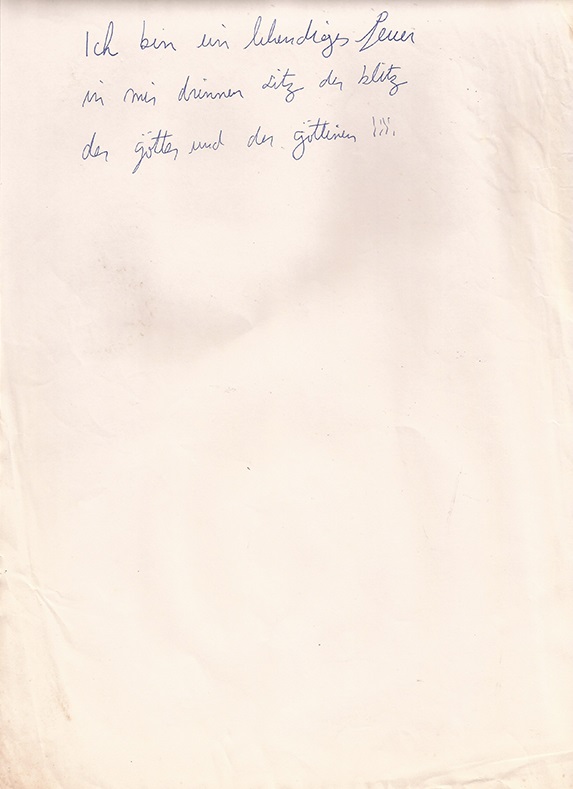 Ich bin ein lebendiges Feuer
in mir drinnen sitz der blitz
der götter und der göttinen !!!!